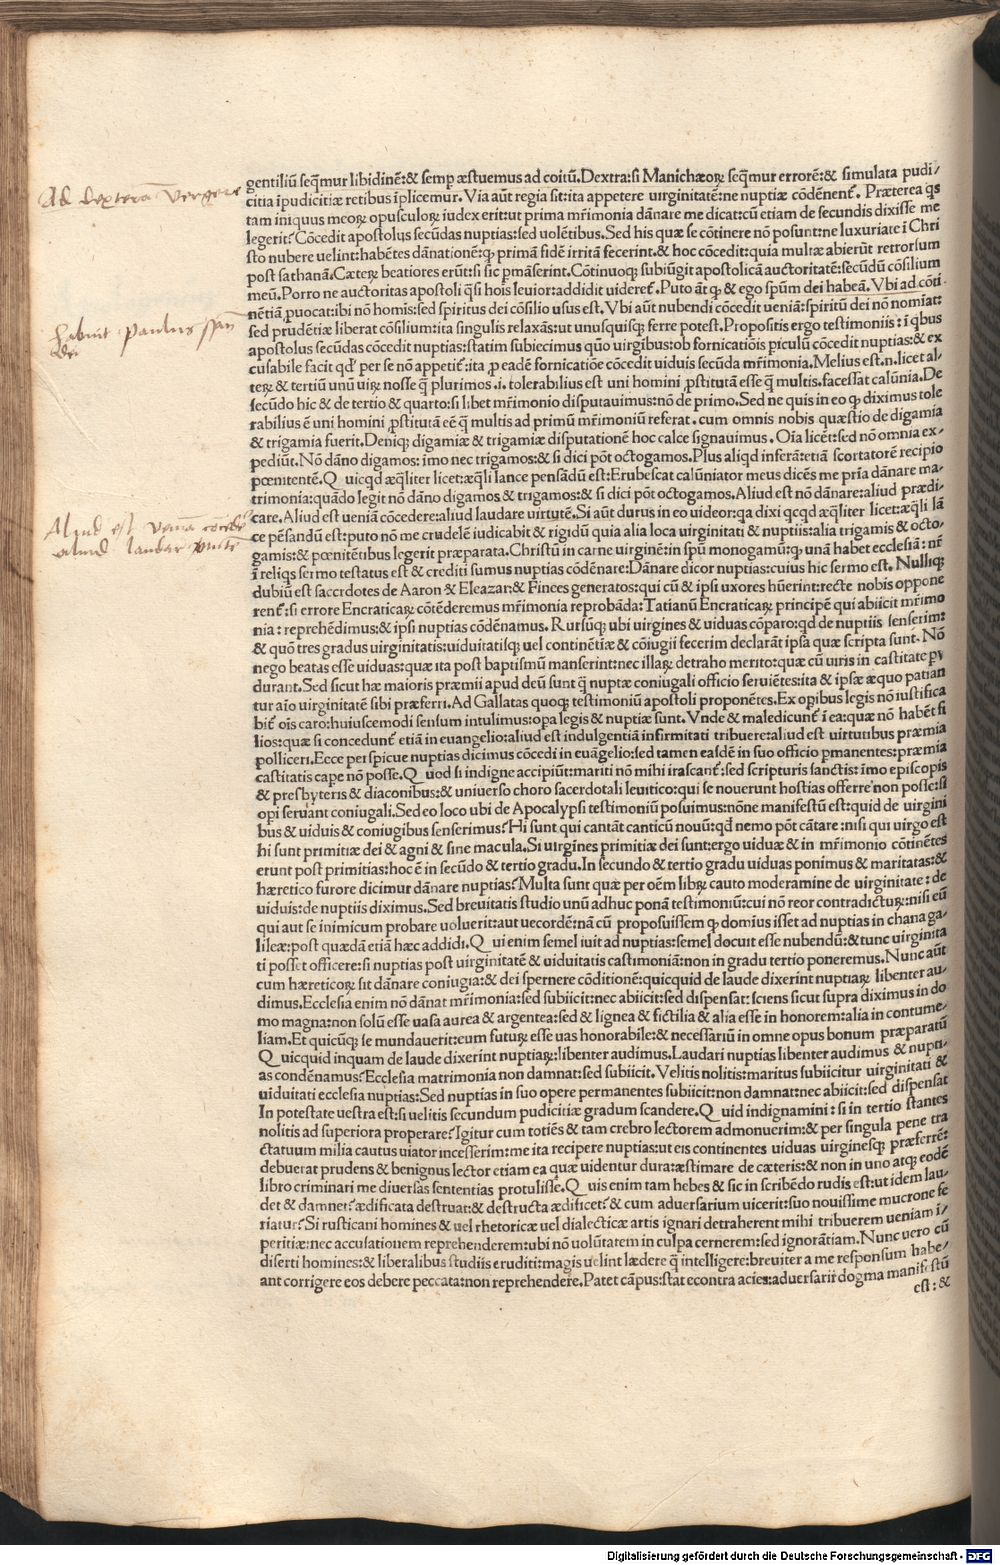 Ad dexteram vergere
gentiliũ seq̃mur libidinẽ:& semꝑ æstuemus ad coitũ.Dextra:si Manichæoꝝ seq̃mur errorẽ:& simulata pudi/
citia ĩpudicitiæ retibus ĩplicemur. Via aũt regia sit:ita appetere uirginitatẽ:ne nuptiæ cõdẽnent̃. Præterea q̃s
tam iniquus meoꝝ opusculoꝝ iudex erit:ut prima mr̃imonia dãnare me dicat:cũ etiam de secundis dixisse me
legerit?Cõcedit apostolus secũdas nuptias:sed uolẽtibus.Sed his quæ se cõtinere nõ posunt:ne luxuriate ĩ Chri
sto nubere uelint:habẽtes dãnationẽ:ꝙ primã fidẽ irritã fecerint.& hoc cõcedit:quia multæ abierũt retrorsum
post sathanã.Cæteꝝ beatiores erũt:si sic ꝑmãserint.Cõtinuoqꝫ subiũgit apostolicã auctoritatẽ:secũdũ cõsilium
meũ.Porro ne auctoritas apostoli q̃si hoĩs leuior:addidit uideret̃.Puto ãt ꝙ & ego spũm dei habeã.Vbi ad cõti
nẽtiã ꝓuocat:ibi nõ homis:sed spiritus dei cõsilio usus est.Vbi aũt nubendi cõcedit ueniã:spiritũ dei nõ nomĩat:
habuit paulus spm̃
dei
sed prudẽtiæ liberat cõsilium:ita singulis relaxãs:ut unusquisqꝫ ferre potest.Propositis ergo testimoniis:ĩ q̃bus
apostolus secũdas cõcedit nuptias:statim subiecimus quõ uirgibus:ob fornicatiõis piculũ cõcedit nuptias:& ex
cusabile facit qđ per se nõ appetit̃:ita ꝓ eadẽ fornicatiõe cõcedit uiduis secũda mr̃imonia.Melius est.n.licet al/
teꝝ & tertiũ unũ uiꝝ nosse q̃ plurimos.i.tolerabilius est uni homini ꝓstitutã esse q̃ multis.facessat calũnia.De
secũdo hic & de tertio & quarto:si libet mr̃imonio disputauimus:nõ de primo.Sed ne quis in eo ꝙ diximus tole
rabilius ẽ uni homini ꝓstitutã eẽ q̃ multis ad primũ mr̃imoniũ referat.cum omnis nobis quæstio de digamia
& trigamia fuerit.Deniqꝫ digamiæ & trigamiæ disputationẽ hoc calce signauimus.Oĩa licẽt:sed nõ omnia ex/
pediũt.Nõ dãno digamos:imo nec trigamos:& si dici põt octogamos.Plus aliqd inferã:etiã scortatorẽ recipio
pœnitentẽ.Q uicqd æq̃liter licet:æq̃li lance pensãdũ est:Erubescat calũniator meus dicẽs me pria dãnare ma/
trimonia:quãdo legit nõ dãno digamos & trigamos:& si dici põt octogamos.Aliud est nõ dãnare:aliud prædi/
Aliud est veniã cõcede
aliud laudare virtutẽ
care.Aliud est ueniã cõcedere:aliud laudare uirtutẽ.Si aũt durus in eo uideor:qa dixi qcqd æq̃liter licet:æq̃li lã
ce pẽsandũ est:puto nõ me crudelẽ iudicabit & rigidũ quia alia loca uirginitati & nuptiis:alia trigamis & octo/
gamis:& pœnitẽtibus legerit præparata.Christũ in carne uirginẽ:in spũ monogamũ:ꝙ unã habet ecclesiã:nr̃
ĩ reliqs sermo testatus est & crediti sumus nuptias cõdẽnare:Dãnare dicor nuptias:cuius hic sermo est.Nulliqꝫ
dubiũ est sacerdotes de Aaron & Eleazar:& Finees generatos:qui cũ & ipsi uxores hũerint:recte nobis oppone
rent̃:si errore Encraticaꝝ cõtẽderemus mr̃imonia reprobãda:Tatianũ Encraticaꝝ principẽ qui abiicit mr̃imo
nia:reprehẽdimus:& ipsi nuptias cõdẽnamus.Rursũqꝫ ubi uirgines & uiduas cõparo:qd de nuptiis senserim:
& quõ tres gradus uirginitatis:uiduitatisqꝫ uel continẽtiæ & cõiugii fecerim declarãt ipsa quæ scripta sunt.Nõ
nego beatas esse uiduas:quæ ita post baptismũ manserint:nec illaꝝ detraho merito:quæ cũ uiris in castitate ꝑ
durant.Sed sicut hæ maioris præmii apud deũ sunt q̃ nuptæ coniugali officio seruiẽtes:ita & ipsæ æquo patian
tur aio uirginitatẽ sibi præferri.Ad Gallatas quoqꝫ testimoniũ apostoli proponẽtes.Ex opibus legis nõ iustifica
bit̃ oĩs caro:huiuscemodi sensum intulimus:opa legis & nuptiæ sunt.Vnde & maledicunt̃ ĩ ea:quæ nõ habẽt fi
lios:quæ si concedunt̃ etiã in euangelio:aliud est indulgentiã infirmitati tribuere:aliud est uirtutibus præmia
polliceri.Ecce perspicue nuptias dicimus cõcedi in euãgelio:sed tamen easdẽ in suo officio ꝑmanentes:præmia
castitatis cape nõ posse.Q uod si indigne accipiũt:mariti nõ mihi irascant̃:sed scripturis sanctis:imo episcopis
& presbyteris & diaconibus:& uniuerso choro sacerdotali leuitico:qui se nouerunt hostias offerre non posse:si
opi seruant coniugali.Sed eo loco ubi de Apocalypsi testimoniũ posuimus:nõne manifestũ est:quid de uirgini
bus & uiduis & coniugibus senserimus?Hi sunt qui cantãt canticũ nouũ:qđ nemo põt cãtare:nisi qui uirgo est
hi sunt primitiæ dei & agni & sine macula.Si uirgines primitiæ dei sunt:ergo uiduæ & in mr̃imonio cõtinẽtes
erunt post primitias:hoc ẽ in secũdo & tertio gradu.In secundo & tertio gradu uiduas ponimus & maritatas:&
hæretico furore dicimur dãnare nuptias?Multa sunt quæ per oẽm libꝝ cauto moderamine de uirginitate:de
uiduis:de nuptiis diximus.Sed breuitatis studio unũ adhuc ponã testimoniũ:cui nõ reor contradictuꝝ:nisi eũ
qui aut se inimicum probare uoluerit:aut uecordẽ:nã cũ proposuissem ꝙ domius isset ad nuptias in chana ga/
lileæ:post quædã etiã hæc addidi.Q ui enim semel iuit ad nuptias:semel docuit esse nubendũ:& tunc uirginita
ti posset officere:si nuptias post uirginitatẽ & uiduitatis castimoniã:non in gradu tertio poneremus.Nunc aũt
cum hæreticoꝝ sit dãnare coniugia:& dei spernere cõditionẽ:quicquid de laude dixerint nuptiaꝝ libenter au/
dimus.Ecclesia enim nõ dãnat mr̃imonia:sed subiicit:nec abiicit:sed dispensat:sciens sicut supra diximus in do
mo magna:non solũ esse uasa aurea & argentea:sed & lignea & fictilia & alia esse in honorem:alia in contume/
liam.Et quicũqꝫ se mundauerit:eum futuꝝ esse uas honorabile:& necessariũ in omne opus bonum præparatũ
Q uicquid inquam de laude dixerint nuptiaꝝ:libenter audimus.Laudari nuptias libenter audimus & nupti/
as condẽnamus?Ecclesia matrimonia non damnat:sed subiicit.Velitis nolitis:maritus subiicitur uirginitati &
uiduitati ecclesia nuptias:Sed nuptias in suo opere permanentes subiicit:non damnat:nec abiicit:sed dispensat
In potestate uestra est:si uelitis secundum pudicitiæ gradum scandere.Q uid indignamini:si in tertio stantes
nolitis ad superiora properare?Igitur cum totiẽs & tam crebro lectorem admonuerim:& per singula pene tra
ctatuum milia cautus uiator incesserim:me ita recipere nuptias:ut eis continentes uiduas uirginesqꝫ præferrẽ:
debuerat prudens & benignus lector etiam ea quæ uidentur dura:æstimare de cæteris:& non in uno atqꝫ eodẽ
libro criminari me diuersas sententias protulisse.Q uis enim tam hebes & sic in scribẽdo rudis est:ut idem lau/
det & damnet?ædificata destruat:& destructa ædificet?& cum aduersarium uicerit:suo nouissime mucrone fe
riatur?Si rusticani homines & uel rhetoricæ uel dialecticæ artis ignari detraherent mihi tribuerem ueniam i/
peritiæ:nec accusationem reprehenderem:ubi nõ uolũtatem in culpa cernerem:sed ignorãtiam.Nunc uero cũ
diserti homines:& liberalibus studiis eruditi:magis uelint lædere q̃ intelligere:breuiter a me responsum habe/
ant corrigere eos debere peccata:non reprehendere.Patet cãpus:stat econtra acies:aduersarii dogma manifestũ
est:&
Digitalisierung gefördert durch die Deutsche Forschungsgemeinschaft - DFG